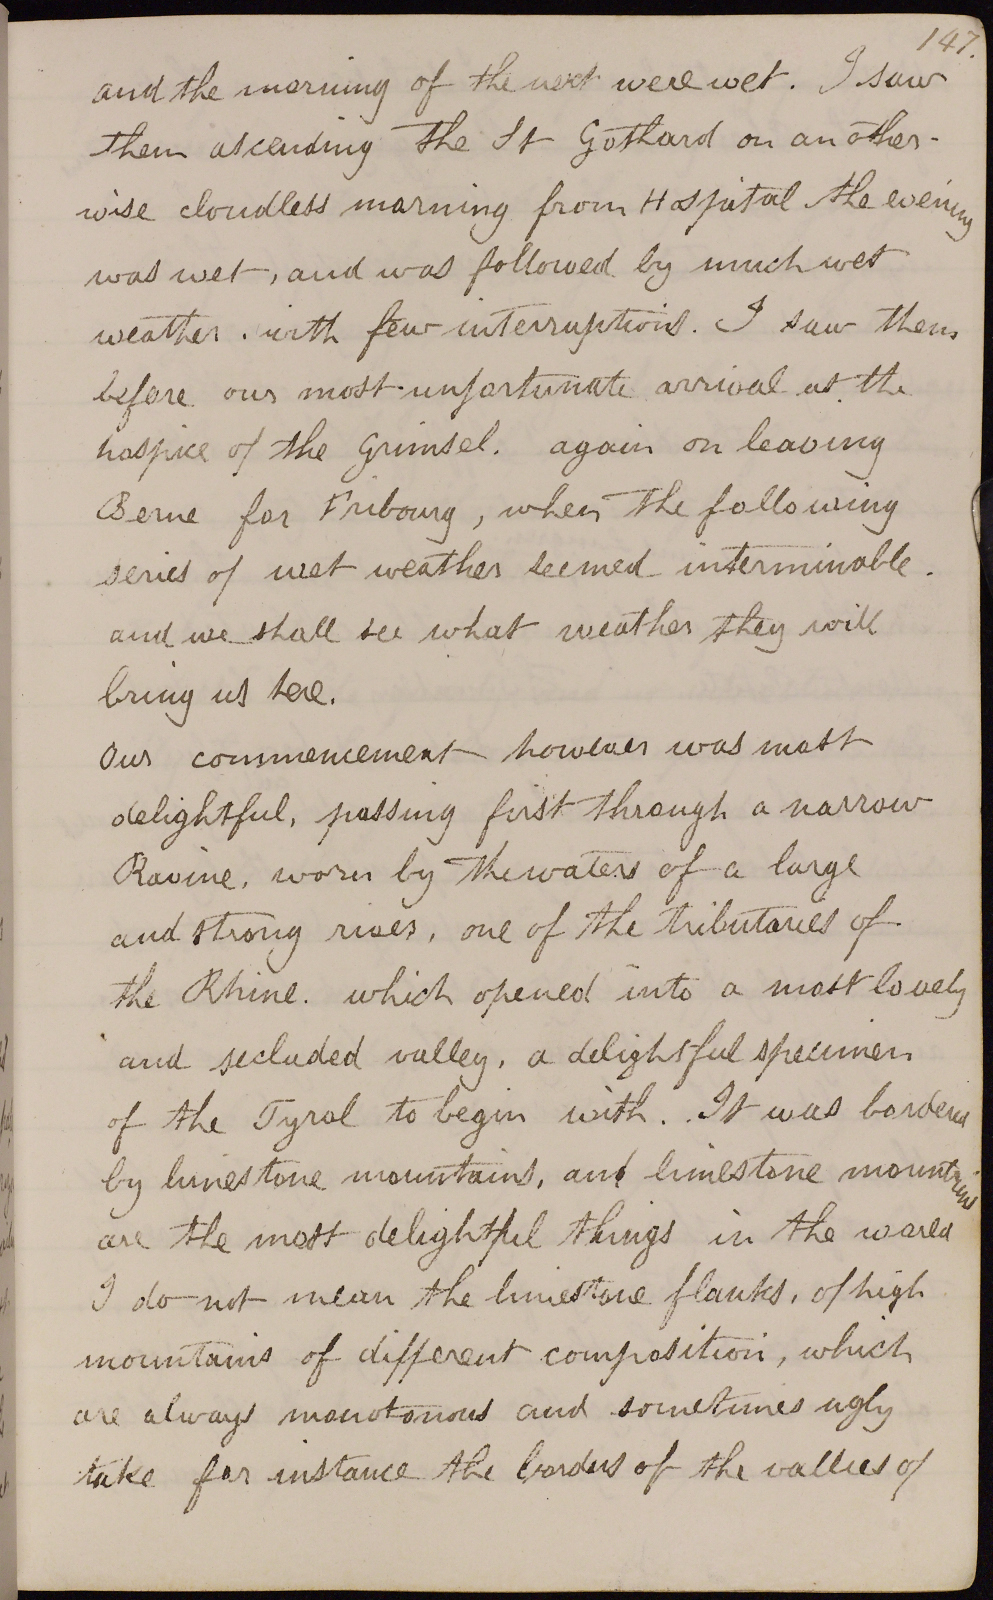 147.
and the morning of the next were wet. I saw
them ascending the St Gothard on an other-
wise cloudless morning from Hospital the evening
was wet, and was followed by much wet
weather. with few interruptions. I saw them
before our most unfortunate arrival at the
hospice of the Grimsel. again on leaving
Berne for Fribourg, when the following
series of wet weather seemed interminable.
and we shall see what weather they will
bring us here.
Our commencement however was most
delightful, passing first through a narrow
Ravine, worn by the waters of a large
and strong river, one of the tributaries of
the Rhine. which opened into a most lovely
and secluded valley, a delightful specimen
of the Tyrol to begin with. It was bordered
by limestone mountains, and limestone mountains
are the most delightful things in the world
I do not mean the limestone flanks, of high
mountains of different composition, which
are always monotonous and sometimes ugly
take for instance the borders of the vallies of